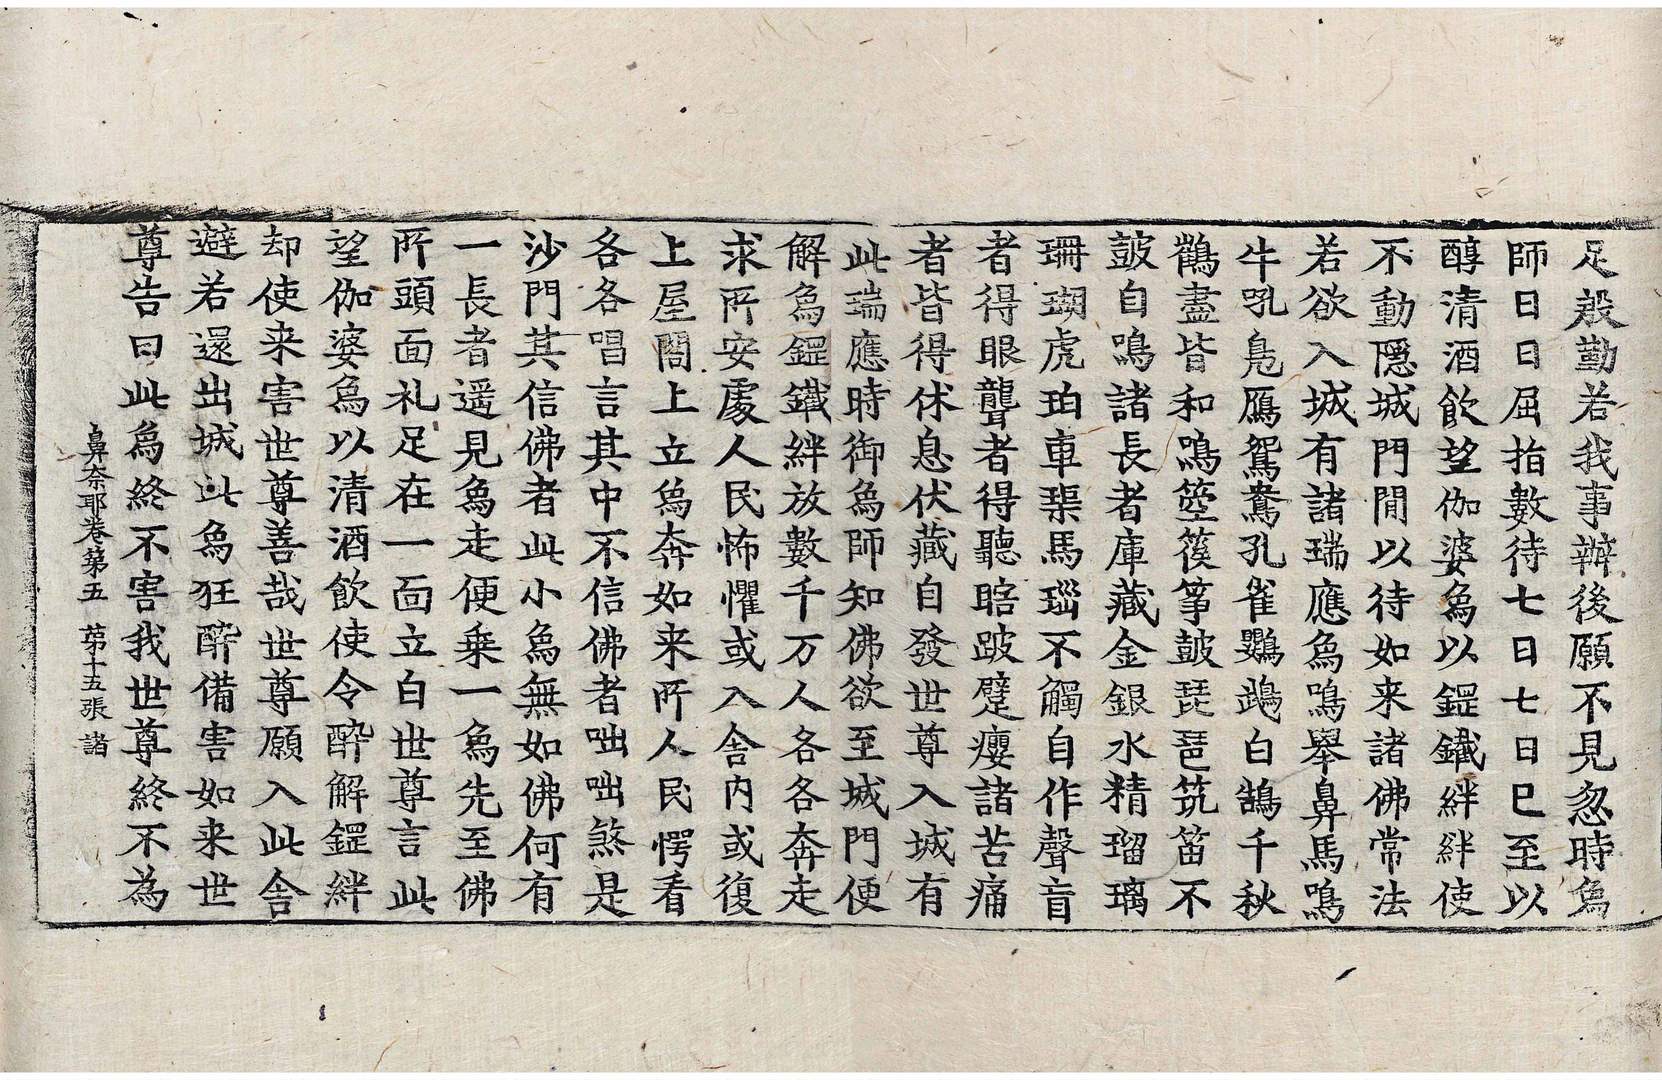 足慇勤若我事辦後願不見忽時為
師日日屈指數待七日七日已至以
醇清酒飲望伽婆為以鋜鐵絆絆使
不動隱城門間以待如来諸佛常法
若欲入城有諸瑞應為鳴舉鼻馬鳴
牛吼鳧鴈鴛鴦孔雀鸚鵡白鵠千秋
鸛盡皆和鳴箜篌筝鼓琵琶筑笛不
鼓自鳴諸長者庫藏金銀水精瑠璃
珊瑚虎珀車璖馬瑙不觸自作聲盲
者得眼聾者得聽瞎跛躄癭諸苦痛
者皆得休息伏藏自發世尊入城有
此瑞應時御為師知佛欲至城門便
解為鋜鐵絆放數千万人各各奔走
求所安處人民怖懼或入舍內或復
上屋閣上立為奔如来所人民愕看
各各唱言其中不信佛者咄咄煞是
沙門其信佛者此小為無如佛何有
一長者遥見為走便乗一為先至佛
所頭面礼足在一面立白世尊言此
望伽婆為以清酒飲使令醉解鋜絆
却使来害世尊善哉世尊願入此舍
避若還出城此為狂醉備害如来世
尊告曰此為終不害我世尊終不為
鼻奈耶卷第五 第十五張 諸